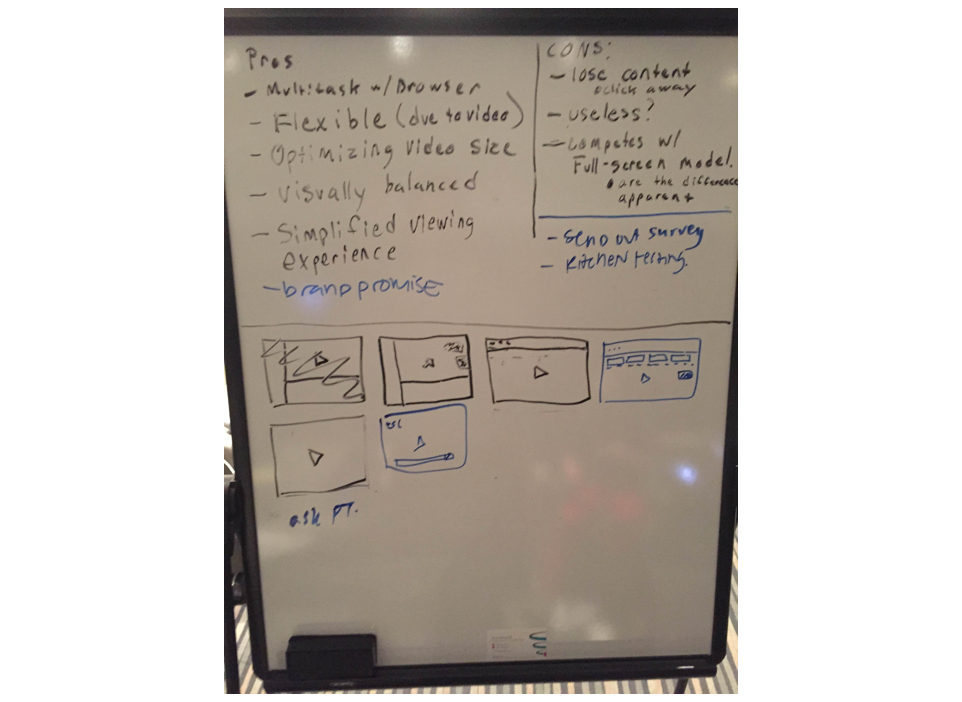 Pros
- Multitask w/Browser
- Flexible (due to video)
- Optimizing Video Size
- Visually balanced
- Simplified Viewing
experience
- brand promise
CONS:
- lose content
click away
- useless?
- Competes w/
Full-screen model.
are the difference
apparent
- Send out survey
- KitcHEN testing.
ask PT.